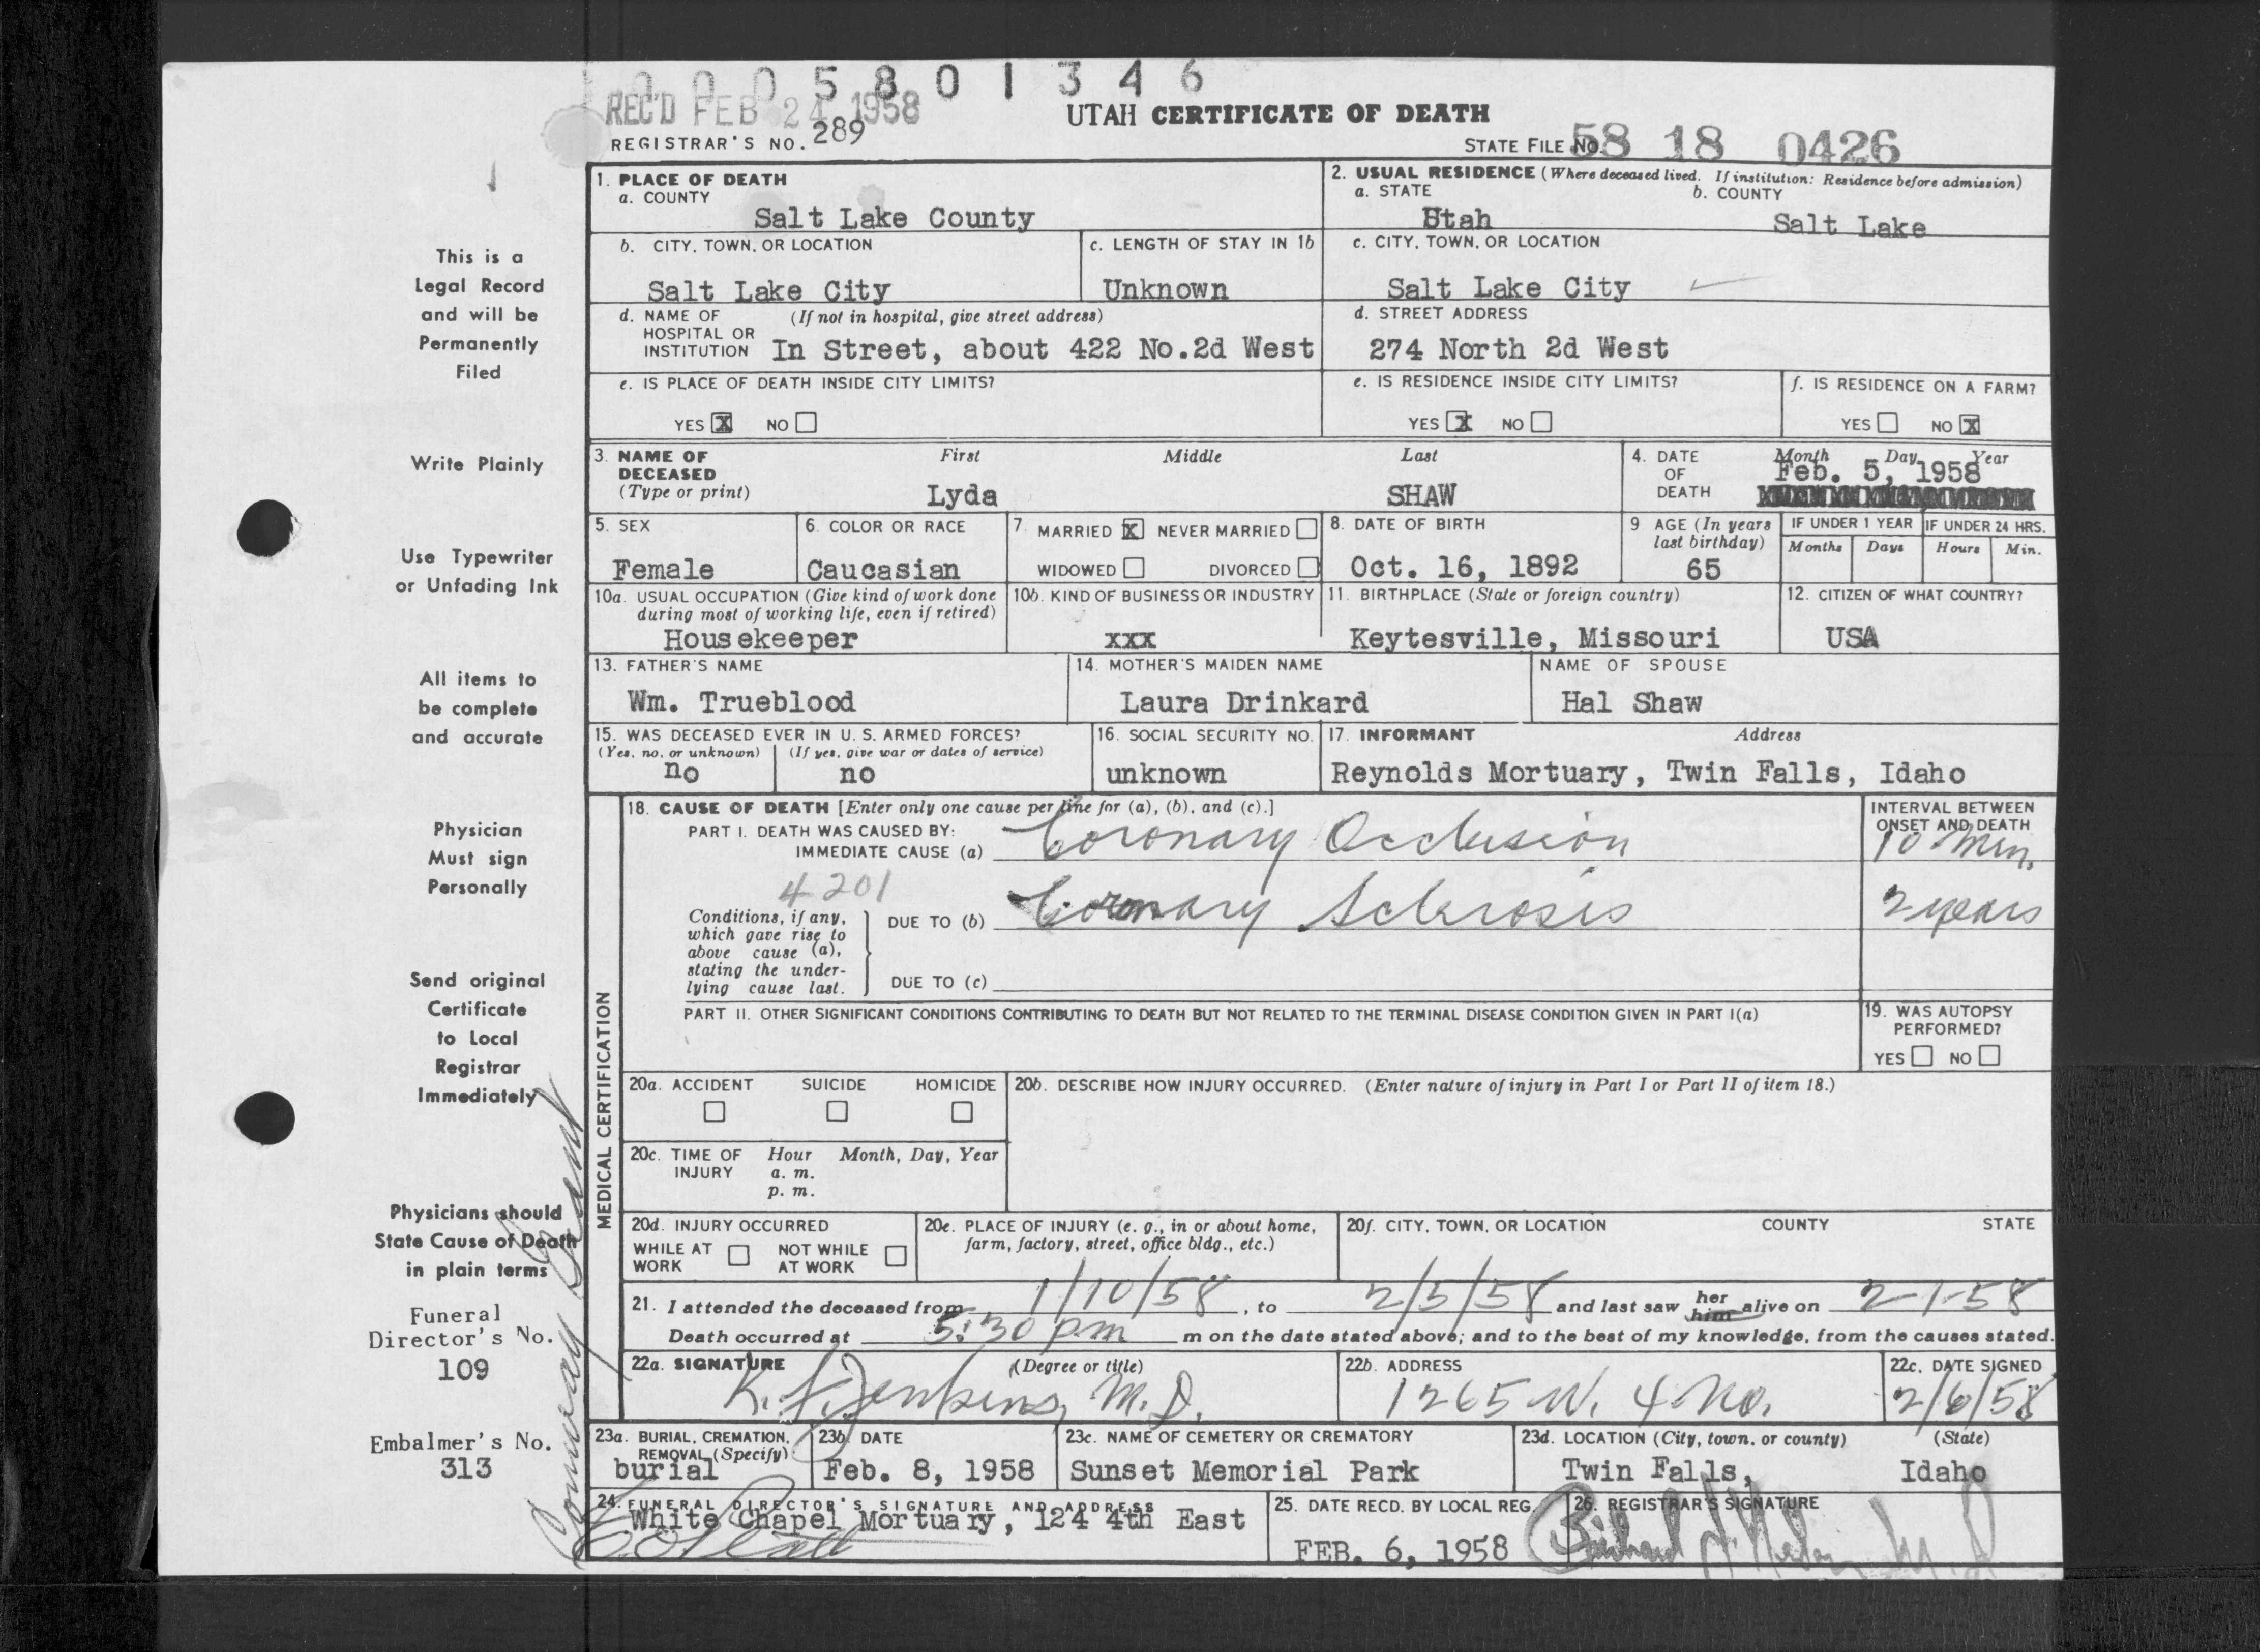 0 0 0 5 8 0 1 3 4 6
REC'D FEB 24 1958
UTAH CERTIFICATE OF DEATH
REGISTRAR'S NO. 289
STATE FILE NO. 58 18 0426
This is a
Legal Record
and will be
Permanently
Filed
Write Plainly
Use Typewriter
or Unfading Ink
All items to
be complete
and accurate
Physician
Must sign
Personally
Send original
Certificate
to Local
Registrar
Immediately
Physicians should
State Cause of Death
in plain terms
Funeral
Director's No.
109
Embalmer's No.
313
1. PLACE OF DEATH
a. COUNTY
Salt Lake County
2. USUAL RESIDENCE (Where deceased lived. If institution: Residence before admission)
a. STATE b. COUNTY
Utah Salt Lake
b. CITY, TOWN, OR LOCATION
Salt Lake City
c. LENGTH OF STAY IN 1b
Unknown
c. CITY, TOWN, OR LOCATION
Salt Lake City
d. NAME OF (If not in hospital, give street address)
HOSPITAL OR
INSTITUTION In Street, about 422 No.2d West
d. STREET ADDRESS
274 North 2d West
e. IS PLACE OF DEATH INSIDE CITY LIMITS?
YES X NO
e. IS RESIDENCE INSIDE CITY LIMITS?
YES X NO
f. IS RESIDENCE ON A FARM?
YES NO X
3. NAME OF First Middle Last
DECEASED
(Type or print) Lyda SHAW
4. DATE Month Day Year
OF Feb. 5, 1958
DEATH
5. SEX
Female
6. COLOR OR RACE
Caucasian
7. MARRIED X NEVER MARRIED
WIDOWED DIVORCED
8. DATE OF BIRTH
Oct. 16, 1892
9 AGE (In years
last birthday)
65
IF UNDER 1 YEAR IF UNDER 24 HRS.
Months Days Hours Min.
10a. USUAL OCCUPATION (Give kind of work done
during most of working life, even if retired)
Housekeeper
10b. KIND OF BUSINESS OR INDUSTRY
xxx
11. BIRTHPLACE (State or foreign country)
Keytesville, Missouri
12. CITIZEN OF WHAT COUNTRY?
USA
13. FATHER'S NAME
Wm. Trueblood
14. MOTHER'S MAIDEN NAME
Laura Drinkard
NAME OF SPOUSE
Hal Shaw
15. WAS DECEASED EVER IN U. S. ARMED FORCES?
(Yes, no, or unknown) (If yes, give war or dates of service)
no no
16. SOCIAL SECURITY NO.
unknown
17. INFORMANT Address
Reynolds Mortuary, Twin Falls, Idaho
MEDICAL CERTIFICATION
18. CAUSE OF DEATH [Enter only one cause per line for (a), (b), and (c).]
PART I. DEATH WAS CAUSED BY:
IMMEDIATE CAUSE (a) Coronary Occlusion
INTERVAL BETWEEN
ONSET AND DEATH
10 Min.
4201
Conditions, if any,
which gave rise to
above cause (a),
stating the under-
lying cause last.
DUE TO (b) Coronary Sclerosis
2 years
DUE TO (c)
PART II. OTHER SIGNIFICANT CONDITIONS CONTRIBUTING TO DEATH BUT NOT RELATED TO THE TERMINAL DISEASE CONDITION GIVEN IN PART I(a)
19. WAS AUTOPSY
PERFORMED?
YES NO
20a. ACCIDENT SUICIDE HOMICIDE
20b. DESCRIBE HOW INJURY OCCURRED. (Enter nature of injury in Part I or Part II of item 18.)
20c. TIME OF Hour Month, Day, Year
INJURY a. m.
p. m.
20d. INJURY OCCURRED
WHILE AT NOT WHILE
WORK AT WORK
20e. PLACE OF INJURY (e. g., in or about home,
farm, factory, street, office bldg., etc.)
20f. CITY, TOWN, OR LOCATION COUNTY STATE
21. I attended the deceased from 1/10/58, to 2/5/58 and last saw her him alive on 2-1-58
Death occurred at 5:30 pm m on the date stated above; and to the best of my knowledge, from the causes stated.
22a. SIGNATURE (Degree or title)
K. Jenkins, M.D.
22b. ADDRESS
1265 W. 4 No.
22c. DATE SIGNED
2/6/58
23a. BURIAL, CREMATION,
REMOVAL (Specify)
burial
23b. DATE
Feb. 8, 1958
23c. NAME OF CEMETERY OR CREMATORY
Sunset Memorial Park
23d. LOCATION (City, town, or county) (State)
Twin Falls, Idaho
24. FUNERAL DIRECTOR'S SIGNATURE AND ADDRESS
White Chapel Mortuary, 124 4th East
25. DATE RECD. BY LOCAL REG.
FEB. 6, 1958
26. REGISTRAR'S SIGNATURE